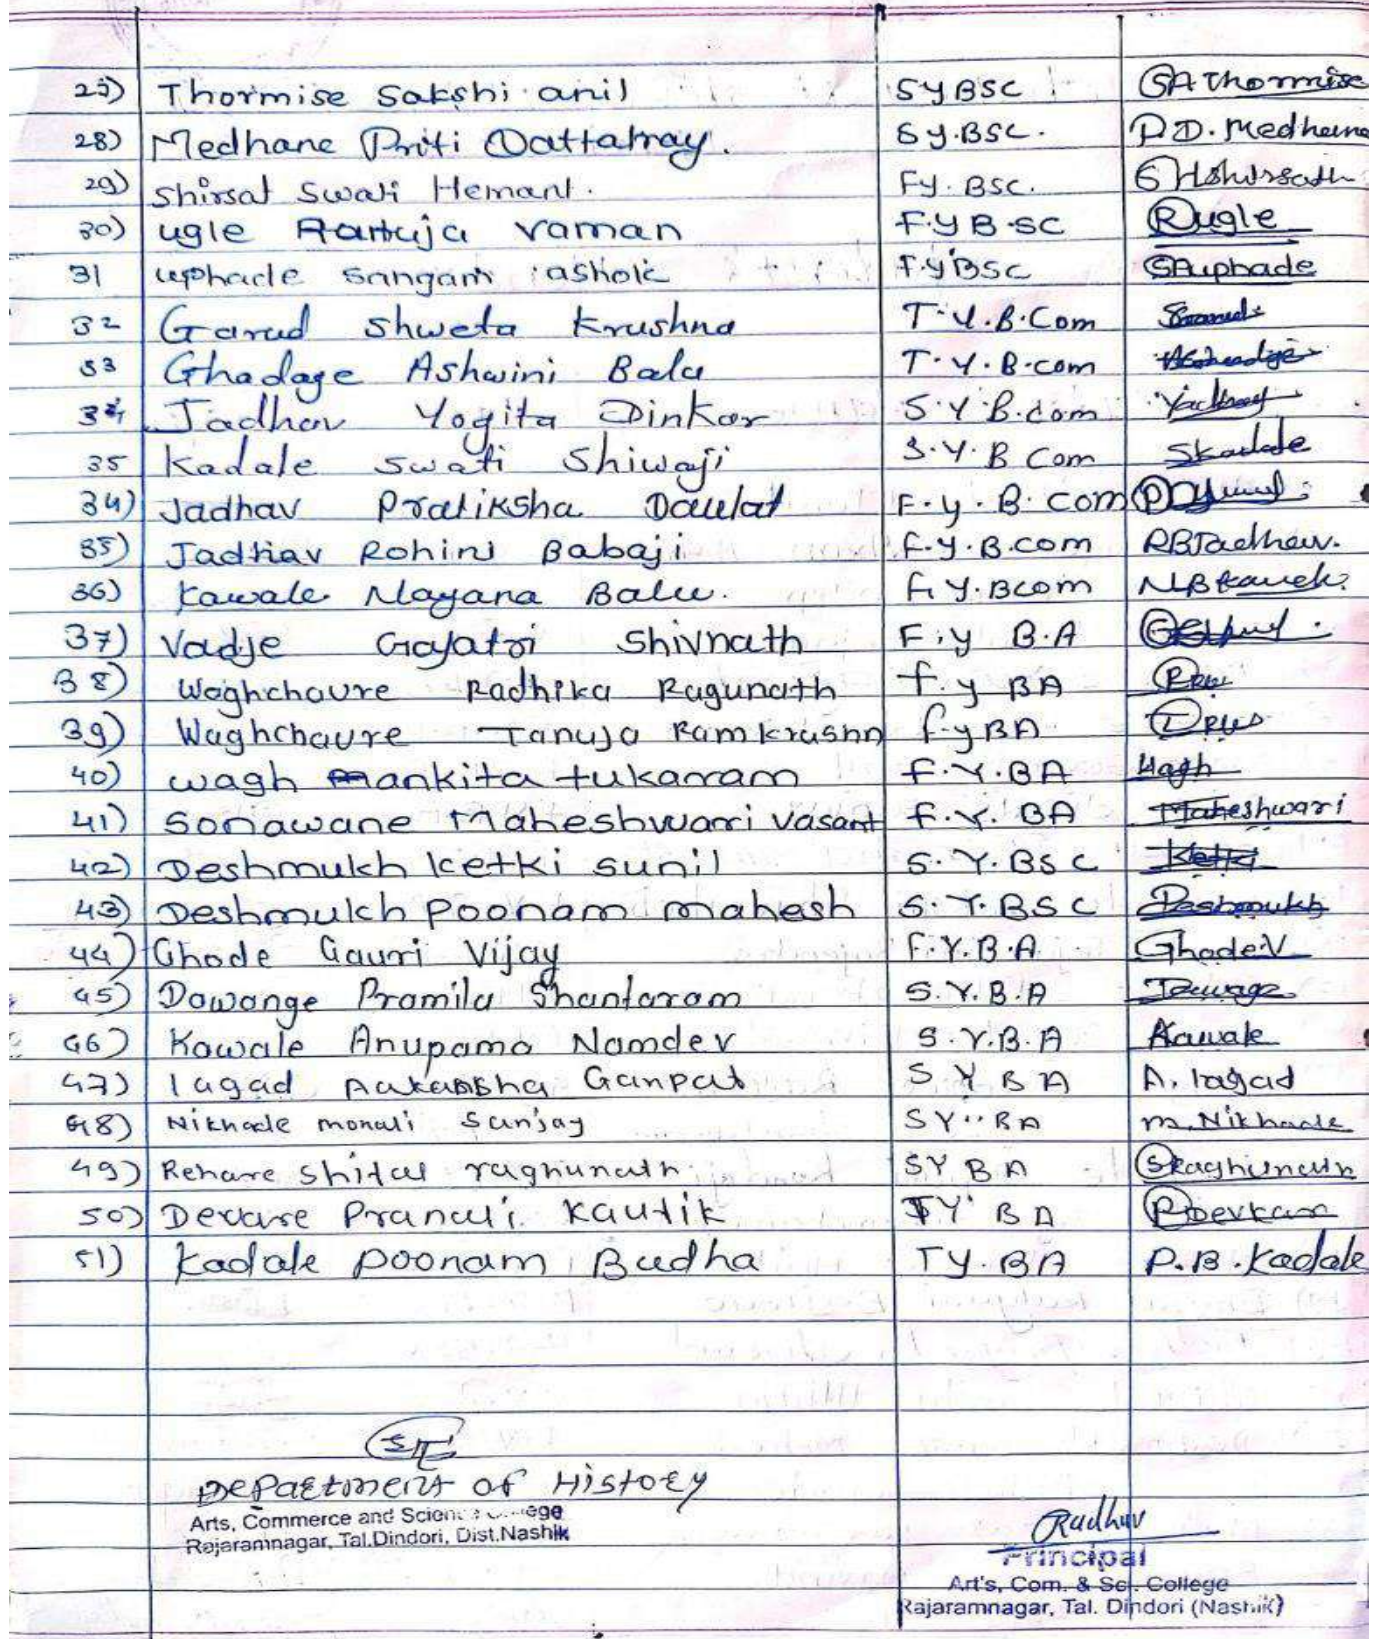 25) Thormise Sakshi anil SYBSC SAThormise
28) Medhane Priti Dattatray. Sy.BSC. P.D. Medhane
29) Shirsat Swati Hemant. Fy. BSC.
30) ugle Raruja vaman F.Y B.SC Rugle
31 uphade sangam ashok F.Y BSC SAuphade
32 Garud Shweta Krushna T.Y.B.Com
33 Ghadage Ashwini Balu T.Y.B.com
34 Jadhav Yogita Dinkar S.Y B.com
35 Kadale Swati Shiwaji S.Y.B Com Skadale
34) Jadhav Pratiksha Daulat F.y.B.com
35) Jadhav Rohini Babaji F.y.B.com RBJadhav.
36) Kawale Nayana Balu. F.Y.Bcom
37) Vadje Gayatri Shivnath F.y B.A
38) Waghchaure Radhika Ragunath f.y BA
39) Waghchaure Tanuja Ramkrushn f.yBA
40) wagh ankita tukaram F.Y.BA Wagh
41) Sonawane Maheshwari Vasant F.Y.BA Maheshwari
42) Deshmukh ketki sunil S.Y.BSC Ketki
43) Deshmukh poonam mahesh S.Y.BSC Deshmukh
44) Ghode Gauri Vijay F.Y.B.A Ghode.V
45) Dawange Pramila Shantaram S.Y.B.A
46) Kawale Anupama Namdev S.Y.B.A Kawale
47) lagad Aakansha Ganpat S Y B A A. lagad
48) Nikhade monali Sanjay SY BA m. Nikhade
49) Rehare Shital raghunath SY B A SRaghunath
50) Devare Pranali Kautik TY B A
51) Kadale poonam Budha TY.BA P.B.Kadale
DEPARTMENT OF HISTORY
Arts, Commerce and Science College
Rajaramnagar, Tal.Dindori, Dist.Nashik
Principal
Art's, Com. & Sci. College
Rajaramnagar, Tal. Dindori (Nashik)